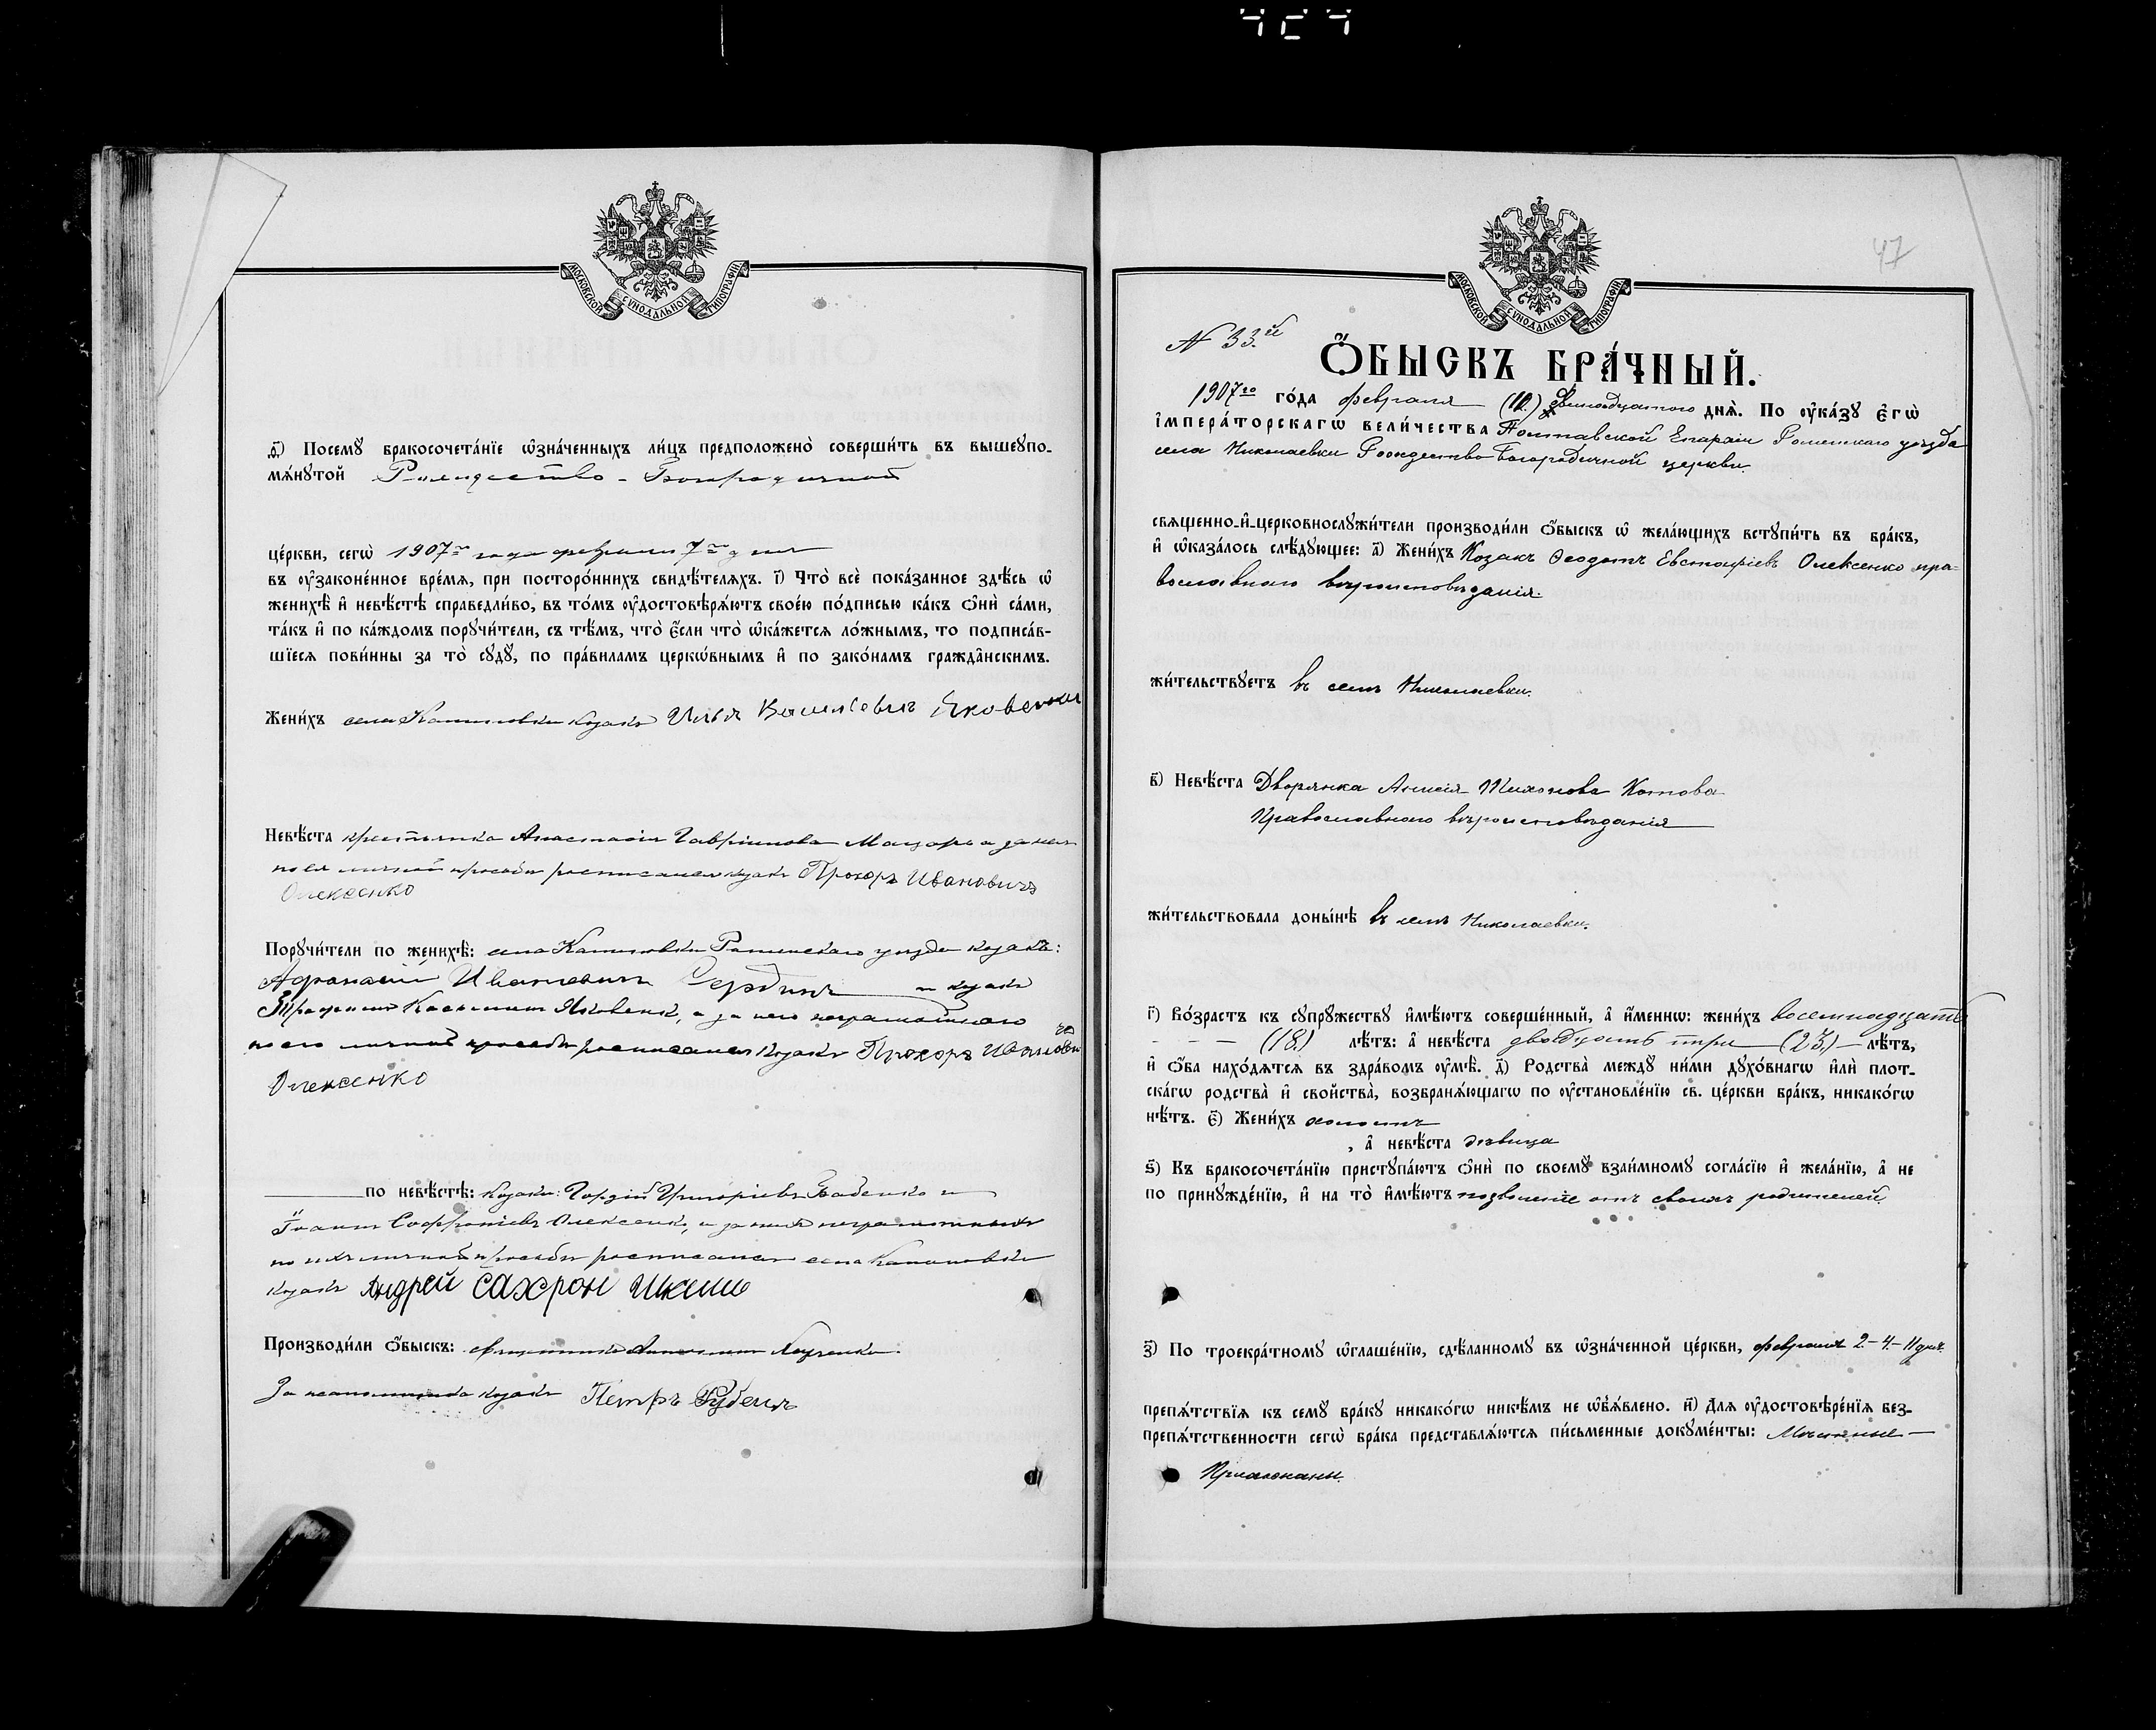 МОСКОВСКОЙ СѴНОДАЛЬНОЙ ТИПОГРАФІИ
д҃) Посемꙋ бракосочета́нїе ѡ҆зна́ченныхъ ли́цъ предположено̀ соверши́ть въ вышеупо-
мѧ́нꙋтой Рождество-Богородичной
це́ркви, сегѡ̀ 1907го года февраля 7го дня
въ ᲂу҆законе́нное вре́мѧ, при посторо́ннихъ свидѣ́телѧхъ. і҃) Что̀ всѐ пока́занное здѣ́сь ѡ҆
женихѣ̀ и҆ невѣ́стѣ справедли́во, въ то́мъ ᲂу҆достовѣрѧ́ютъ свое́ю по́дписью ка́къ ѻ҆нѝ са́ми,
та́къ и҆ по ка́ждомъ порꙋчи́тели, съ тѣ́мъ, что̀ є҆́сли что̀ ѡ҆ка́жетсѧ ло́жнымъ, то подписа́в-
шїесѧ пови́нны за то̀ сꙋдꙋ̀, по пра́виламъ церкѡ́внымъ и҆ по зако́намъ гражда̂нскимъ.
Жени́хъ села козакъ Илья Васильевъ Яковенко
Невѣ́ста крестьянка Анастасія Гавріилова а за нея
по ея личной просьбѣ росписался козакъ Прохоръ Ивановичъ
Олексенко
Порꙋчи́тели по женихѣ̀: села Роменскаго уѣзда козакъ:
Афанасій Ивановичъ Сердюкъ и козакъ
Трофимъ Яковенко, а за него неграмотнаго
по его личной просьбѣ росписался козакъ Прохоръ Ивановичъ
Олексенко
по невѣ́стѣ: козаки: Гордій Григоріевъ Бабенко и
Іоаннъ Софроніевъ Олексенко, а за нихъ неграмотныхъ
по ихъ личной просьбѣ росписался села
козакъ Андрей Сахрон
Производи́ли ѻ҆́быскъ: священникъ
За псаломщика козакъ Петръ
47
МОСКОВСКОЙ СѴНОДАЛЬНОЙ ТИПОГРАФІИ
№ 33.й
Ѻ҆́БЫСКЪ БРА́ЧНЫЙ.
1907го го́да февраля (12.) двѣнадцатого днѧ̀. По ᲂу҆ка́зꙋ є҆гѡ̀
і҆мпера́торскагѡ вели́чества Полтавской Епархіи Роменскаго уѣзда
села Николаевки Рождество Богородичной церкви
свѧщенно-и҆-церковнослꙋжи́тели производи́ли ѻ҆́быскъ ѡ҆ жела́ющихъ встꙋпи́ть въ бра́къ,
и҆ ѡ҆каза́лось слѣ́дꙋющее: а҃) Жени́хъ Козакъ Ѳеодотъ Евстафіевъ Олексенко пра-
вославнаго вѣроисповѣданія.
жи́тельствꙋетъ въ селѣ Николаевки.
в҃) Невѣ́ста Дворянка Анисія Тихонова Котова
Православного вѣроисповѣданія
жи́тельствовала доны́нѣ въ селѣ Николаевки.
г҃) Во́зрастъ къ сꙋпрꙋ́жествꙋ и҆мѣ́ютъ соверше́нный, а҆ и҆́меннѡ: жени́хъ восемнадцать
(18.) лѣ́тъ: а҆ невѣ́ста двадцать три (23.) лѣ́тъ,
и҆ ѻ҆́ба нахо́дѧтсѧ въ здра́вомъ ᲂу҆мѣ̀. д҃) Родства̀ междꙋ ни́ми дꙋхо́внагѡ и҆лѝ плот-
ска́гѡ родства̀ и҆ свойства̀, возбранѧ́ющагѡ по ᲂу҆становле́нїю св. це́ркви бра́къ, никако́гѡ
нѣ́тъ. є҃) Жени́хъ холостъ
, а҆ невѣ́ста дѣвица
ѕ҃) Къ бракосочета́нїю пристꙋпа́ютъ ѻ҆нѝ по своемꙋ̀ взаи́мномꙋ согла́сїю и҆ жела́нїю, а҆ не
по принꙋжде́нїю, и҆ на то̀ и҆мѣ́ютъ позволеніе отъ своихъ родителей.
з҃) По троекра́тномꙋ ѡ҆глаше́нїю, сдѣ́ланномꙋ въ ѡ҆зна́ченной це́ркви, февраля 2-4-11 дня.
препѧ́тствїѧ къ семꙋ̀ бра́кꙋ никако́гѡ никѣ́мъ не ѡ҆б̾ѧ́влено. и҃) Длѧ ᲂу҆достовѣре́нїѧ без-
препѧ́тственности сегѡ̀ бра́ка представлѧ́ютсѧ пи́сьменные докꙋме́нты: